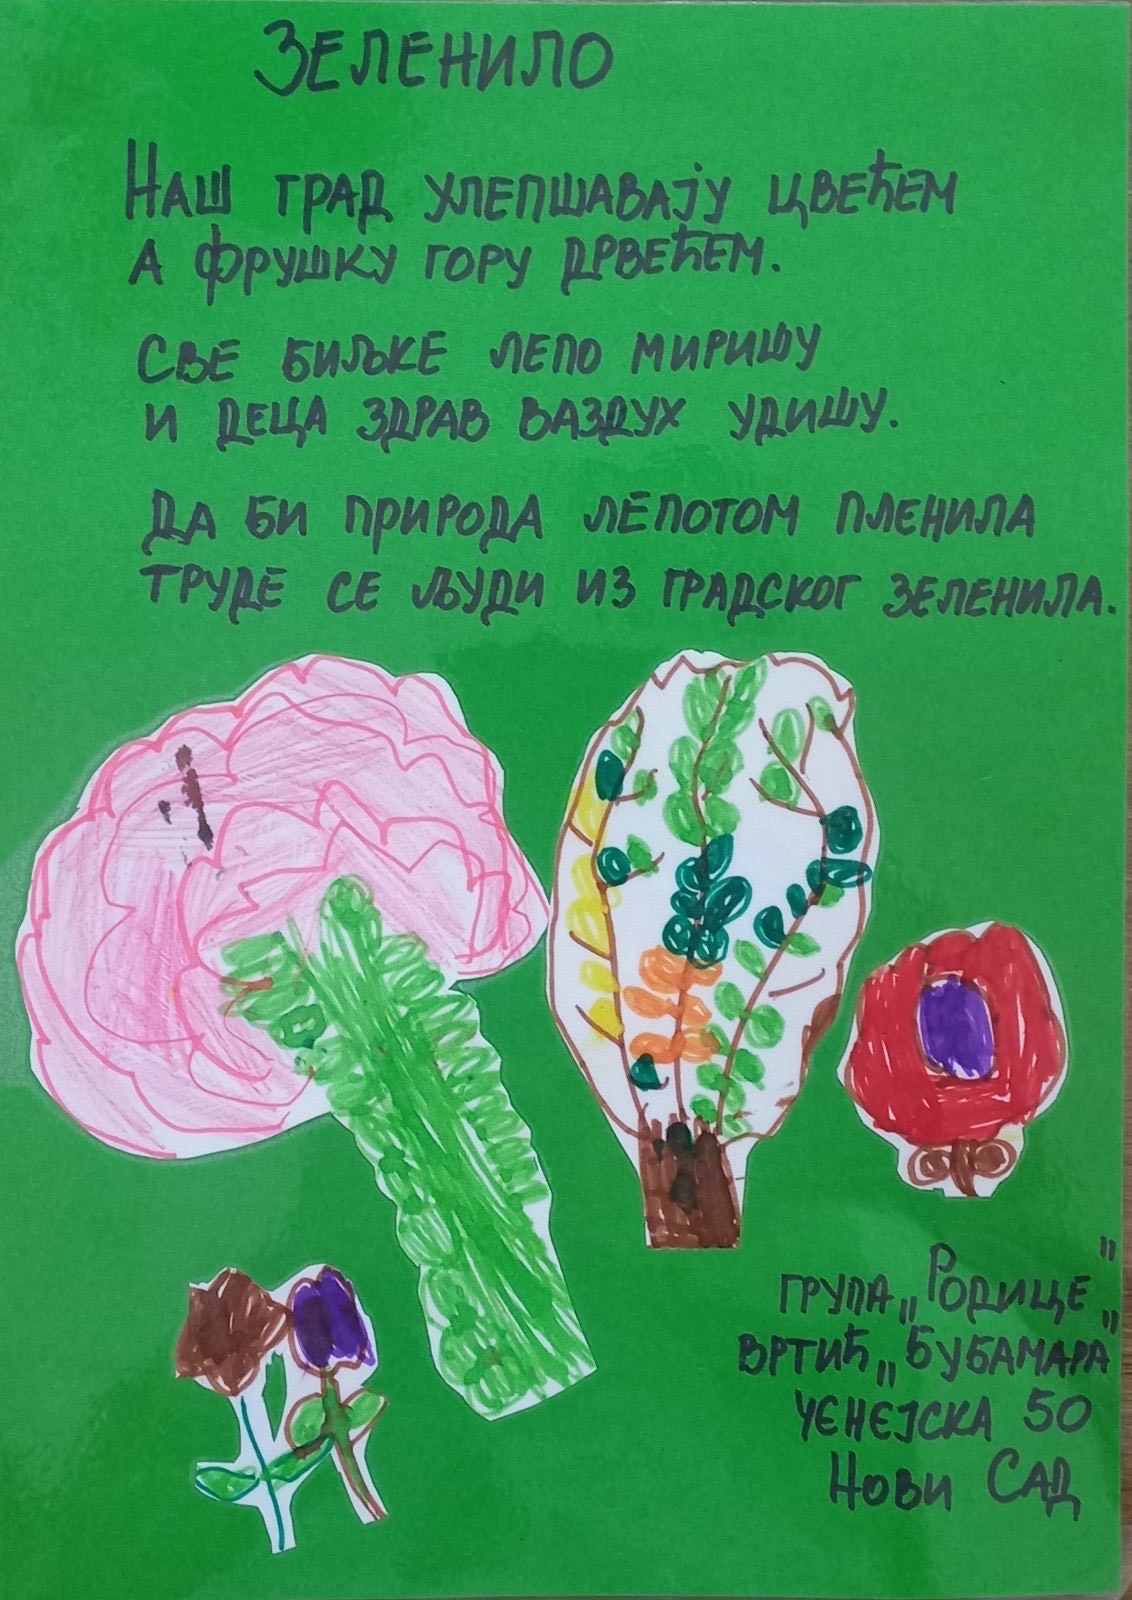 ЗЕЛЕНИЛО
НАШ ГРАД УЛЕПШАВАЈУ ЦВЕЋЕМ
А ФРУШКУ ГОРУ ДРВЕЋЕМ.
СВЕ БИЉКЕ ЛЕПО МИРИШУ
И ДЕЦА ЗДРАВ ВАЗДУХ УДИШУ.
ДА БИ ПРИРОДА ЛЕПОТОМ ПЛЕНИЛА
ТРУДЕ СЕ ЉУДИ ИЗ ГРАДСКОГ ЗЕЛЕНИЛА.
ГРУПА „РОДИЦЕ"
ВРТИЋ „БУБАМАРА"
ЧЕНЕЈСКА 50
НОВИ САД